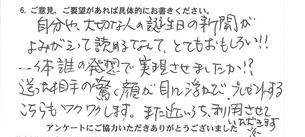 6. ご意見、ご要望があれば具体的にお書きください。
自分や、大切な人の誕生日の新聞が
よみがえって読めるなんて、とてもおもしろい!!
一体誰の発想で実現させましたか!?
送った相手の驚く顔が目に浮かんで、プレゼントする
こちらもワクワクします。また近いうち、利用させて
いただきます
アンケートにご協力いただきありがとうございました